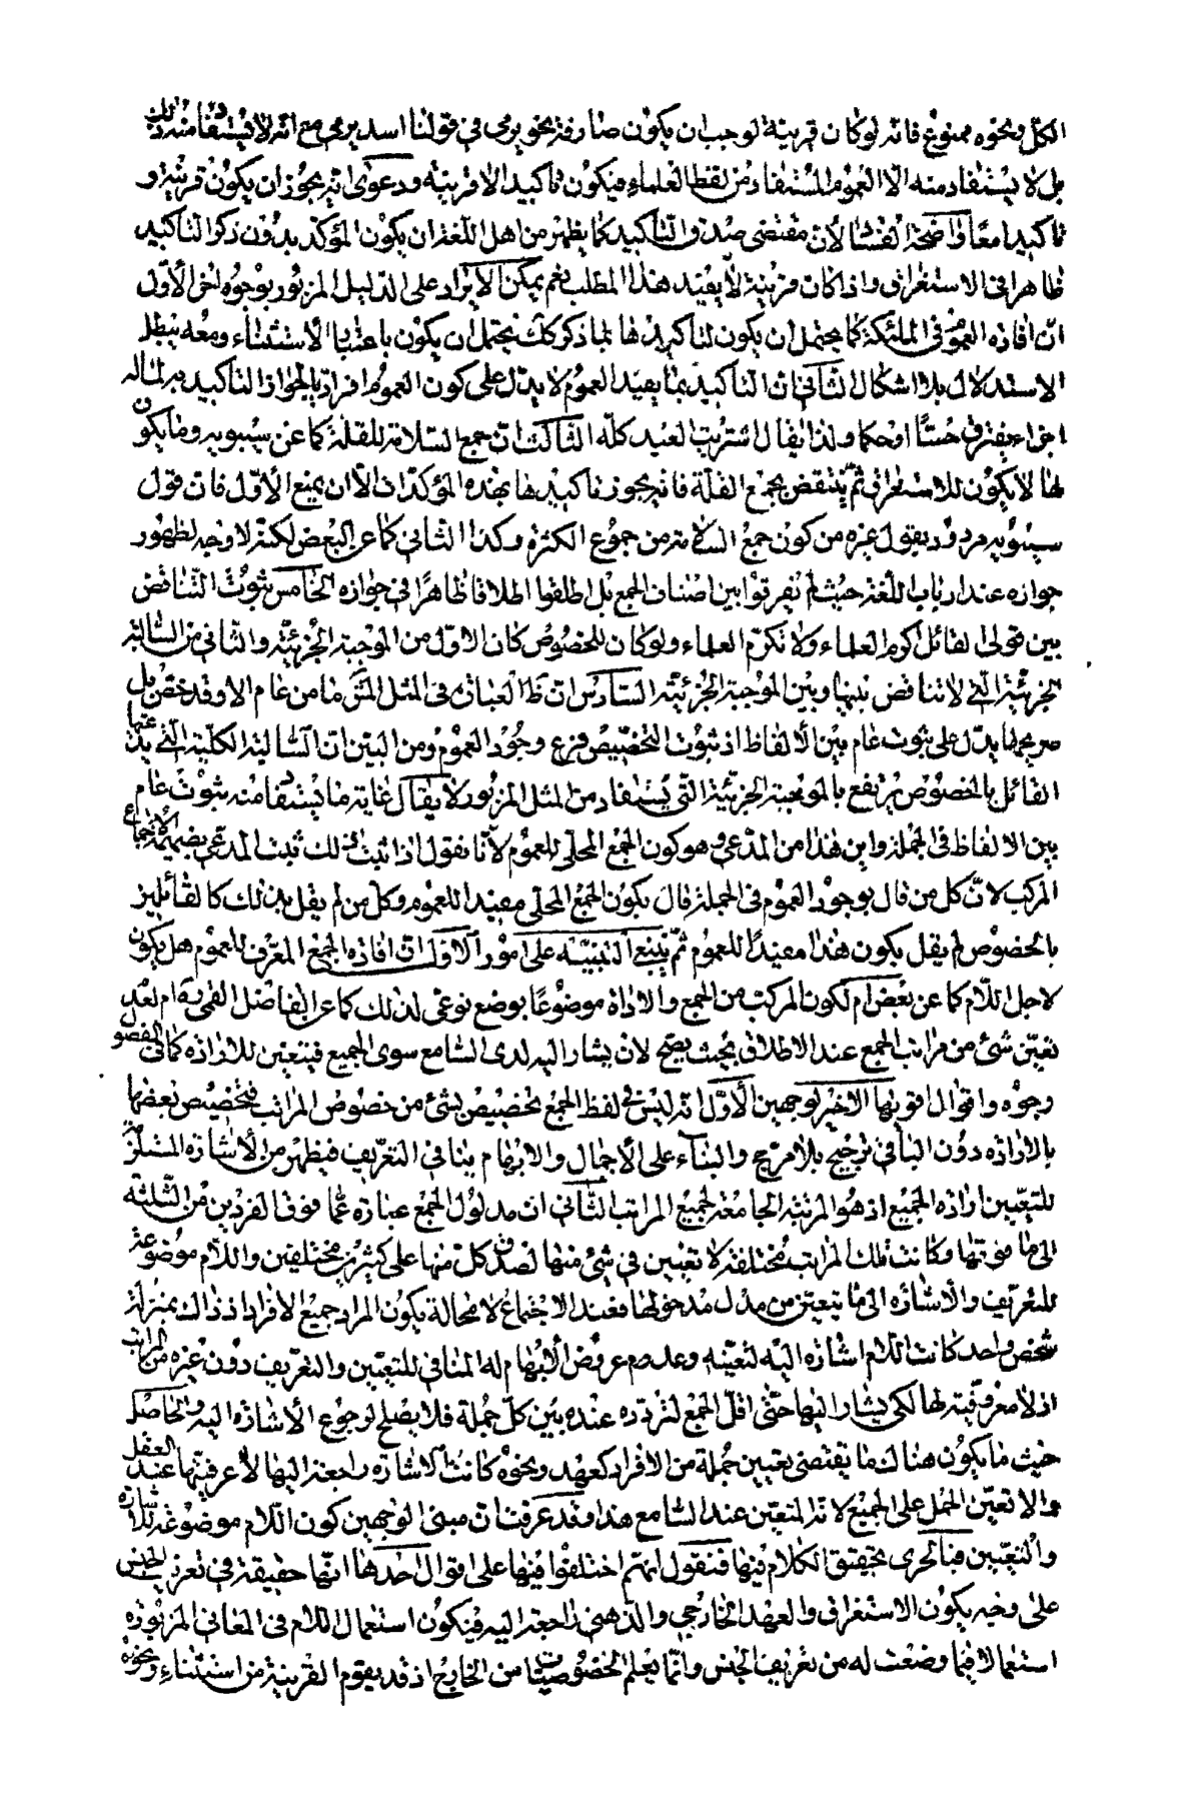 الكل ونحوه ممنوع فانه لو كان قرينة لوجب ان يكون صارفة نحو يرمى فى قولنا اسد يرمى مع انه لا يستفاد منه ذلك
بل لا يستفاد منه الا العموم المستفاد من لفظ العلماء فيكون تاكيدا لا قرينة ودعوى انه يجوز ان يكون قرينة و
تاكيدا معا واضحة الفساد لان مقتضى صدق التاكيد كما يظهر من اهل اللغة ان يكون المؤكد بدون ذكر التاكيد
ظاهرا فى الاستغراق واذا كان قرينة لا يفيد هذا المطلب نعم يمكن الايراد على الدليل المزبور بوجوه اخر الاول
ان افادة العموم فى الملئكة كما يحتمل ان يكون لتاكيدها بما ذكر كك يحتمل ان يكون باعتبار الاستثناء ومعه يبطل
الاستدلال بلا اشكال الثانى ان التاكيد بما يفيد العموم لا يدل على كون العموم افراديا لجواز التاكيد به لماله
اجزاء يفترق حسا او حكما ولذا يقال اشتريت العبد كله الثالث ان جمع السلامة للقلة كما عن سيبويه وما يكون
لها لا يكون للاستغراق ثم ينتقض بجمع القلة فانه يجوز تاكيدها بهذه المؤكدات الا ان يمنع الاول فان قول
سيبويه مردود بقول غيره من كون جمع السلامة من جموع الكثرة وكذا الثانى كما عن البعض لكنه لا وجه لظهور
جوازه عند ارباب اللغة حيث لم يفرقوا بين اصناف الجمع بل اطلقوا اطلاقا ظاهرا فى جوازه الخامس ثبوت التناقض
بين قولى القائل اكرم العلماء ولا تكرم العلماء ولو كان للخصوص كان الاول من الموجبة الجزئية والثانى من السالبة
الجزئية التى لا تناقض بينها وبين الموجبة الجزئية السادس ان ظ العبارة فى المثل المش ما من عام الا وقد خص بل
صريحها يدل على ثبوت عام بين الالفاظ اذ ثبوت التخصيص فرع وجود العموم ومن البين ان السالبة الكلية التى يدعيها
القائل بالخصوص يرتفع بالموجبة الجزئية التى يستفاد من المثل المزبور لا يقال غاية ما يستفاد منه ثبوت عام
بين الالفاظ فى الجملة واين هذا من المدعى وهو كون الجمع المحلى للعموم لانا نقول اذا ثبت ذلك ثبت المدعى بضميمة الاجماع
المركب لان كل من قال بوجود العموم فى الجملة قال بكون الجمع المحلى مفيدا للعموم وكل من لم يقل بذلك كالقائلين
بالخصوص لم يقل بكون هذا مفيدا للعموم ثم ينبغى التنبيه على امور الاول ان افادة الجمع المعرف للعموم هل يكون
لاجل اللام كما عن بعض ام لكون المركب من الجمع والاداة موضوعا بوضع نوعى لذلك كما عن الفاضل القمى ره ام لعدم
تعين شئ من مراتب الجمع عند الاطلاق بحيث يصح لان يشار اليه لدى السامع سوى الجميع فيتعين للارادة كما فى الفصول
وجوه واقوال اقويها الاخير لوجهين الاول انه ليس فى لفظ الجمع تخصيص بشئ من خصوص المراتب فتخصيص بعضها
بالارادة دون الباقى ترجيح بلا مرجح والبناء على الاجمال والابهام ينافى التعريف فيظهر من الاشارة المستلزمة
للتعيين ارادة الجميع اذ هو المرتبة الجامعة لجميع المراتب الثانى ان مدلول الجمع عبارة عما فوق الفردين من الثلثة
الى ما فوقها وكانت تلك المراتب مختلفة لا تعيين فى شئ منها لصدق كل منها على كثيرين مختلفين واللام موضوعة
للتعريف والاشارة الى ما يتعين من مدلول مدخولها فعند الاجتماع لا محالة يكون المراد جميع الافراد اذ ذاك بمنزلة
شخص واحد كانت اللام اشارة اليه لتعينه وعدم عروض الابهام له المنافى للتعيين والتعريف دون غيره من المراتب
اذ لا معروفية لها لكى يشار اليها حتى اقل الجمع لتردده عنده بين كل جملة فلا يصلح لرجوع الاشارة اليه والحاصل
حيث ما يكون هناك ما يقتضى تعيين جملة من الافراد كعهد ونحوه كانت الاشارة راجعة اليها لاعرفيتها عند العقل
والا تعين الحمل على الجميع لانه المتعين عند السامع هذا وقد عرفت ان مبنى الوجهين كون اللام موضوعة للاشارة
والتعيين فبالحرى تحقيق الكلام فيها فنقول انهم اختلفوا فيها على اقوال احدها انها حقيقة فى تعريف الجنس
على وجه يكون الاستغراق والعهد الخارجى والذهنى راجعة اليه فيكون استعمال اللام فى المعانى المزبورة
استعمالا فيما وضعت له من تعريف الجنس وانما يعلم الخصوصيات من الخارج اذ قد يقوم القرينة من استثناء ونحوه